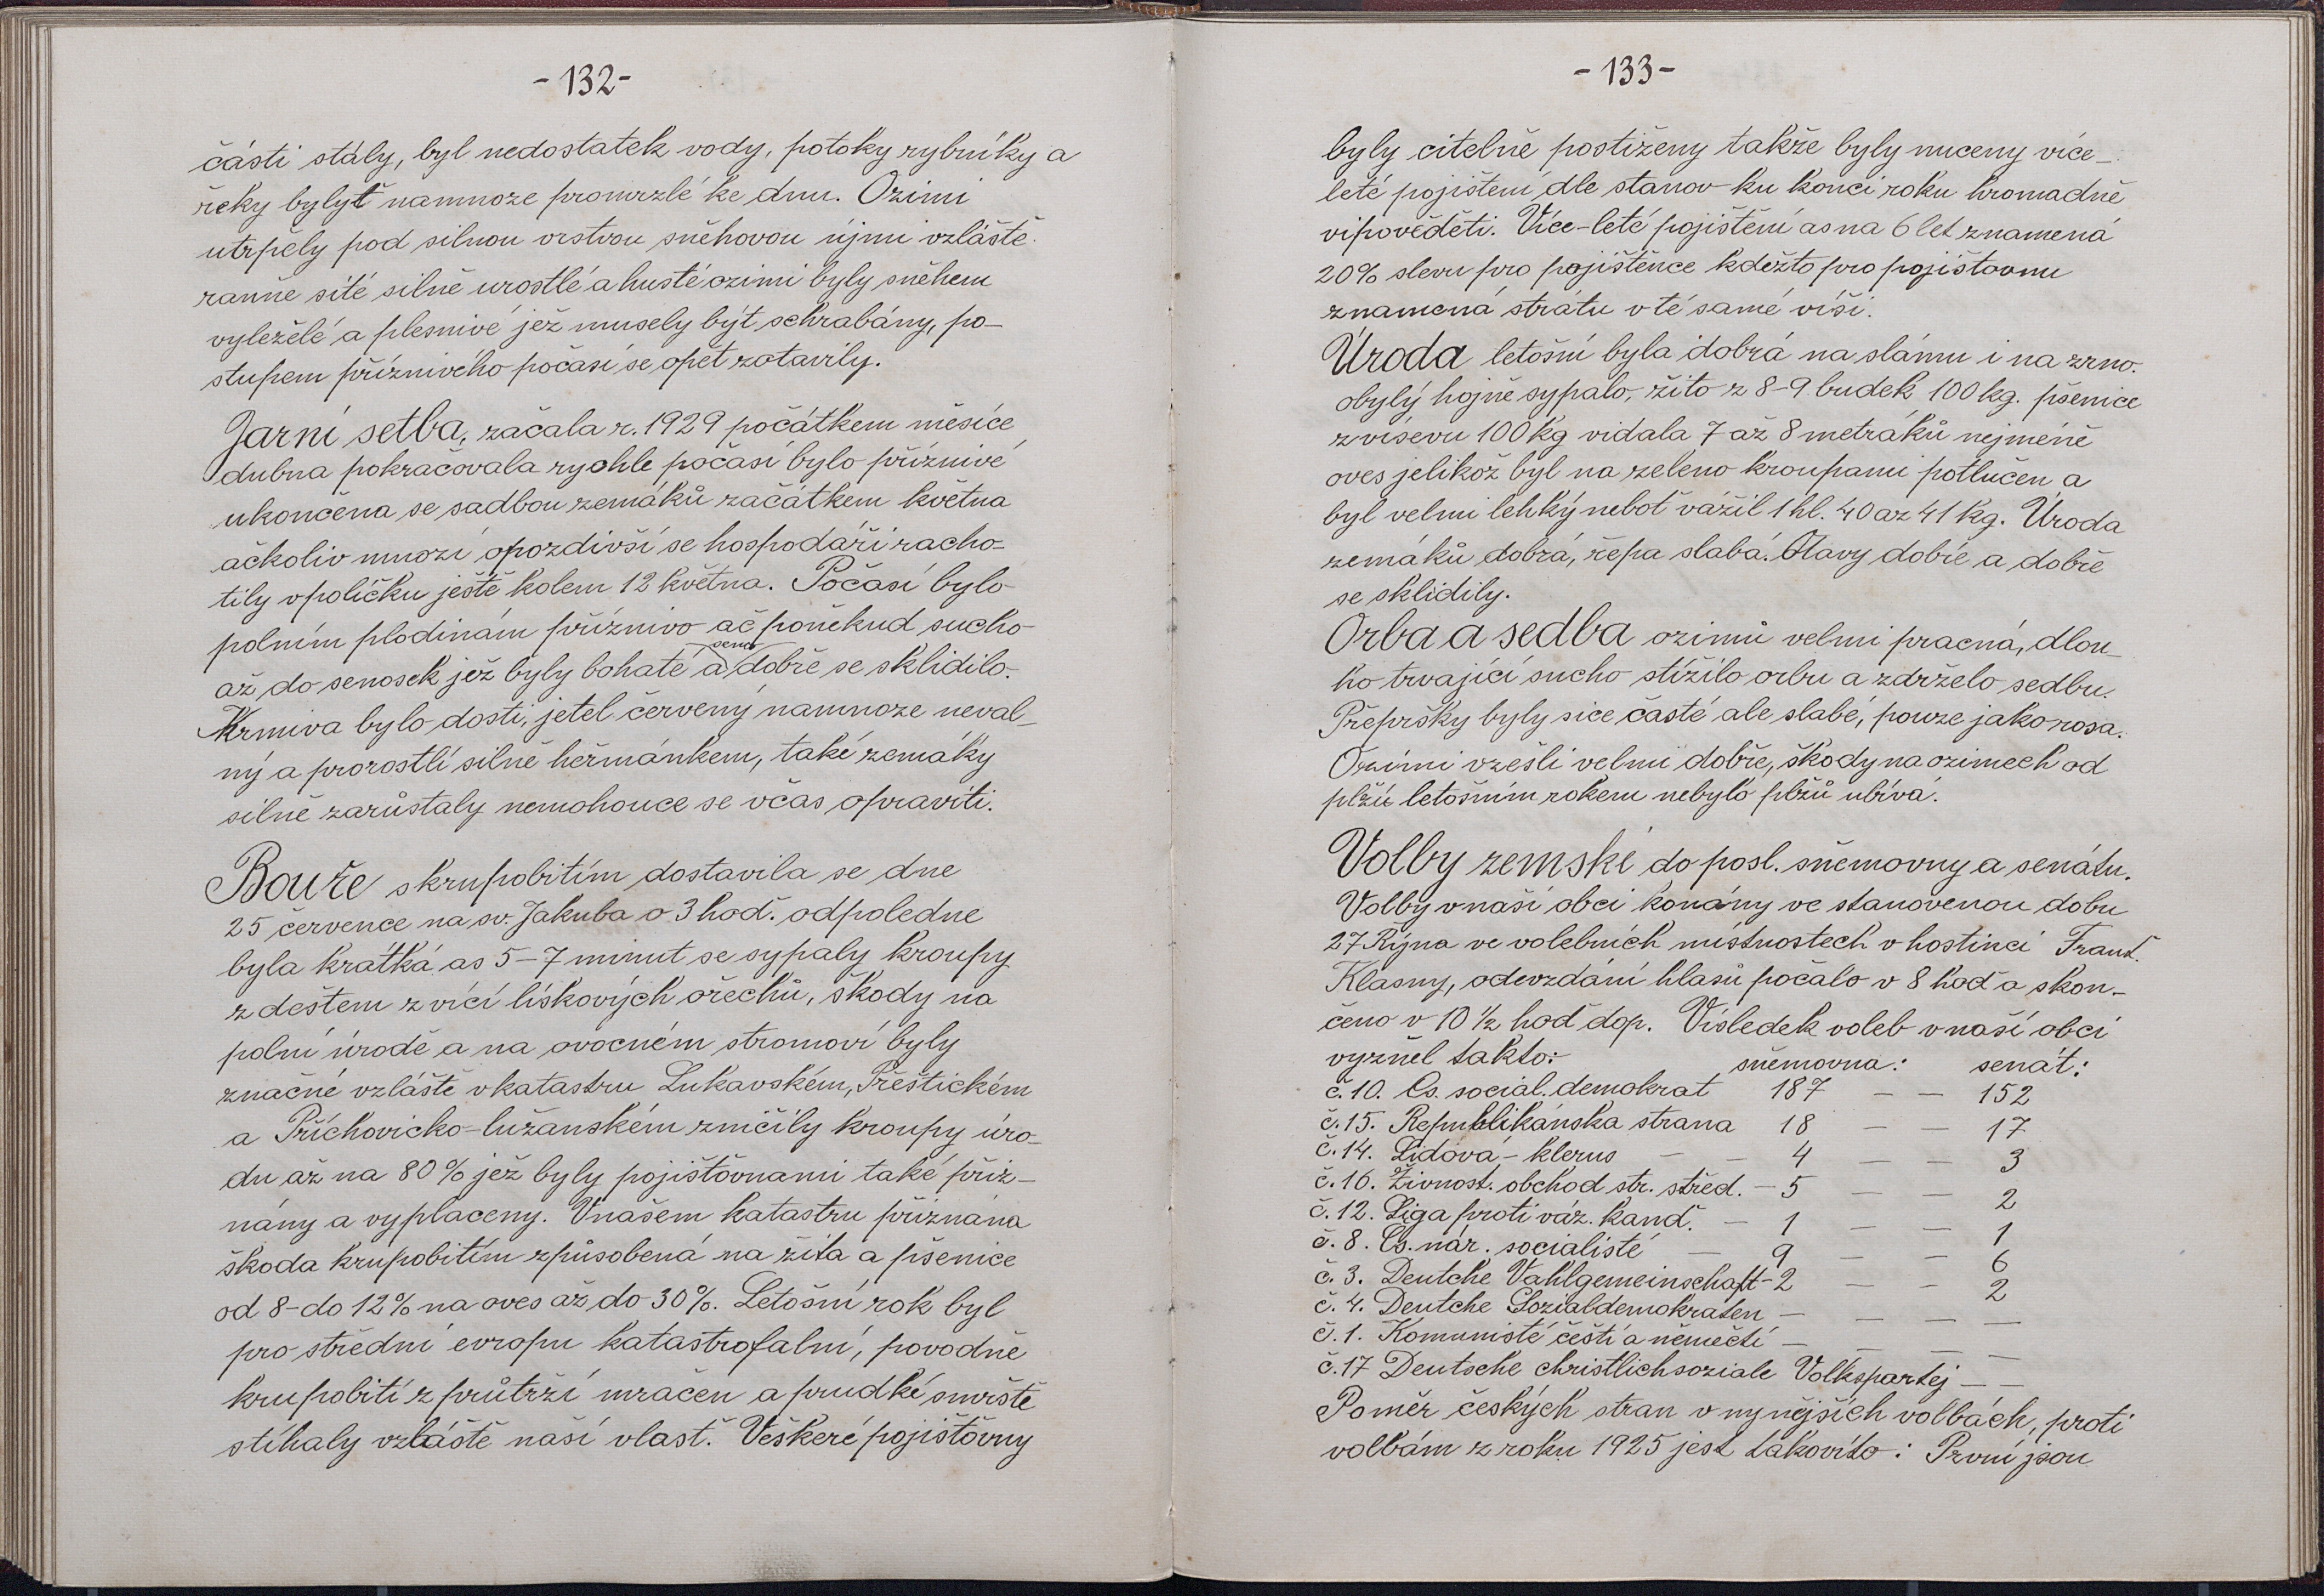 -132-
části stály, byl nedostatek vody, potoky rybníky a
řeky bylyť namnoze promrzlé ke dnu. Ozimi
utrpěly pod silnou vrstvou sněhovou újmi vzláště
ranně sité silně urostlé a husté ozimi byly sněhem
vyleželé a plesnivé jež musely být schrabány, po-
stupem příznivého počasí se opět zotavily.
Jarní setba, začala r. 1929 počátkem měsíce
dubna pokračovala rychle počasí bylo příznivé
ukončena se sadbou zemáků začátkem května
ačkoliv mnozí opozdivší se hospodáři racho-
tily vpolíčku ještě kolem 12 května. Počasí bylo
polním plodinám příznivo ač poněkud sucho
až do senosek jež byly bohaté a seno dobře se sklidilo.
Krmiva bylo dosti, jetel červený namnoze neval-
ný a prorostlí silně heřmánkem, také zemáky
silně zarůstaly nemohouce se včas opraviti.
Bouře skrupobitím dostavila se dne
25 července na sv. Jakuba o 3 hod. odpoledne
byla krátká as 5-7 minut se sypaly kroupy
z deštem z vící lískových ořechů, škody na
polní úrodě a na ovocném stromoví byly
značné vzláště vkatastru Lukavském, Přeštickém
a Příchovicko-lužanském zničily kroupy úro-
du až na 80% jež byly pojišťovnami také přiz-
nány a vyplaceny. Vnašem katastru přiznána
škoda krupobitím způsobená na žita a pšenice
od 8-do 12% na oves až do 30%. Letošní rok byl
pro střední evropu katastrofalní, povodně
krupobití z průtrží mračen a prudké smrště
stíhaly vzláště naší vlasť. Veškeré pojišťovny
-133-
byly citelně postiženy takže byly nuceny více-
leté pojištení dle stanov ku konci roku hromadně
vipověděti. Více-leté pojištení as na 6 let znamená
20% slevu pro pojištěnce kdežto pro pojišťovnu
znamená strátu v té samé víši.
Úroda letošní byla dobrá na slámu i na zrno.
obylý hojně sypalo, žito z 8-9 budek 100 kg. pšenice
z vísevu 100 kg vidala 7 až 8 metráků nejméně
oves jelikož byl na zeleno kroupami potlučen a
byl velmi lehký neboť vážil 1 hl. 40 až 41 kg. Úroda
zemáků dobrá, řepa slabá. Otavy dobře a dobře
se sklidily.
Orba a sedba ozimů velmi pracná, dlou-
ho trvající sucho stížilo orbu a zdrželo sedbu.
Přepršky byly sice časté ale slabé, pouze jako rosa.
Ozimi vzešli velmi dobře, škody na ozimech od
plžů letošním rokem nebylo plžů ubívá.
Volby zemské do posl. sněmovny a senátu.
Volby v naší obci konány ve stanovenou dobu
27 Října ve volebních místnostech v hostinci Frant.
Klasny, odevzdání hlasů počalo v 8 hod a skon-
čeno v 10 ½ hod dop. Vísledek voleb v naší obci
vyzněl takto: sněmovna: senát:
č. 10. Čs. social. demokrat 187 — — 152
č. 15. Republikánska strana 18 — — 17
č. 14. Lidová - klerus — — 4 — — 3
č. 16. Živnost. obchod str. střed. — 5 — — 2
č. 12. Liga proti váz. kand. — 1 — — 1
č. 8. Čs. nár. socialisté — 9 — — 6
č. 3. Deutche Vahlgemeinschaft - 2 — — 2
č. 4. Deutche Sozialdemokraten — — — —
č. 1. Komunisté čeští a němečtí — — — —
č. 17 Deutsche christlichsoziale Volkspartej — —
Poměr českých stran v nynějších volbách, proti
volbám z roku 1925 jest takovíto: První jsou